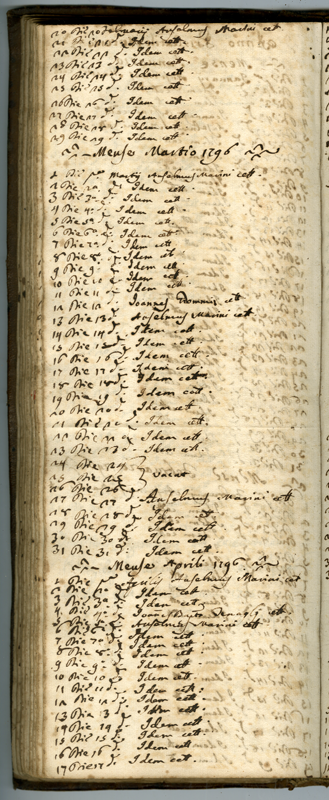 20 Die 20 Februarii Anselmus Marini cet
21 Die 21 d. Idem cett
22 Die 22 d. Idem cett
23 Die 23 d. Idem cett
24 Die 24 d. Idem cett
25 Die 25 d. Idem cett
26 Die 26 d. Idem cett
27 Die 27 d. Idem cett
28 Die 28 d. Idem cett
29 Die 29 d. Idem cett
Mense Martio 1796
1 Die pa Martii Anselmus Marini cett.
2 Die 2a d. Idem cett
3 Die 3a d. Idem cett
4 Die 4a d. Idem cett
5 Die 5a d. Idem cett
6 Die 6a d. Idem cett
7 Die 7a d. Idem cett
8 Die 8a d. Idem cett
9 Die 9a d. Idem cett
10 Die 10 d. Idem cett
11 Die 11 d. Idem cett
12 Die 12 d. Joannes cett
13 Die 13 d. Anselmus Marini cett
14 Die 14 d. Idem cett
15 Die 15 d. Idem cett
16 Die 16 d. Idem cett
17 Die 17 d. Idem cett
18 Die 18 d. Idem cett
19 Die 19 d. Idem cett
20 Die 20 d. Idem cett
21 Die 21 d. Idem cett
22 Die 22 d. Idem cett
23 Die 23 d. Idem cett
24 Die 24
25 Die 25 vacat
26 Die 26
27 Die 27 d. Anselmus Marini cett
28 Die 28 d. Idem cett
29 Die 29 d. Idem cett
30 Die 30 d. Idem cett
31 Die 31 d. Idem cett
Mense Aprili 1796
1 Die pa Aprilis Anselmus Marini cet
2 Die 2a d. Idem cett
3 Die 3a d. Idem cett
4 Die 4a d. cet
5 Die 5a d. Anselmus Marini cett
6 Die 6a d. Idem cett
7 Die 7a d. Idem cett
8 Die 8a d. Idem cett
9 Die 9a d. Idem cett
10 Die 10 d. Idem cett
11 Die 11 d. Idem cett
12 Die 12 d. Idem cett
13 Die 13 d. Idem cett
14 Die 14 d. Idem cett
15 Die 15 d. Idem cett
16 Die 16 d. Idem cett
17 Die 17 d. Idem cett